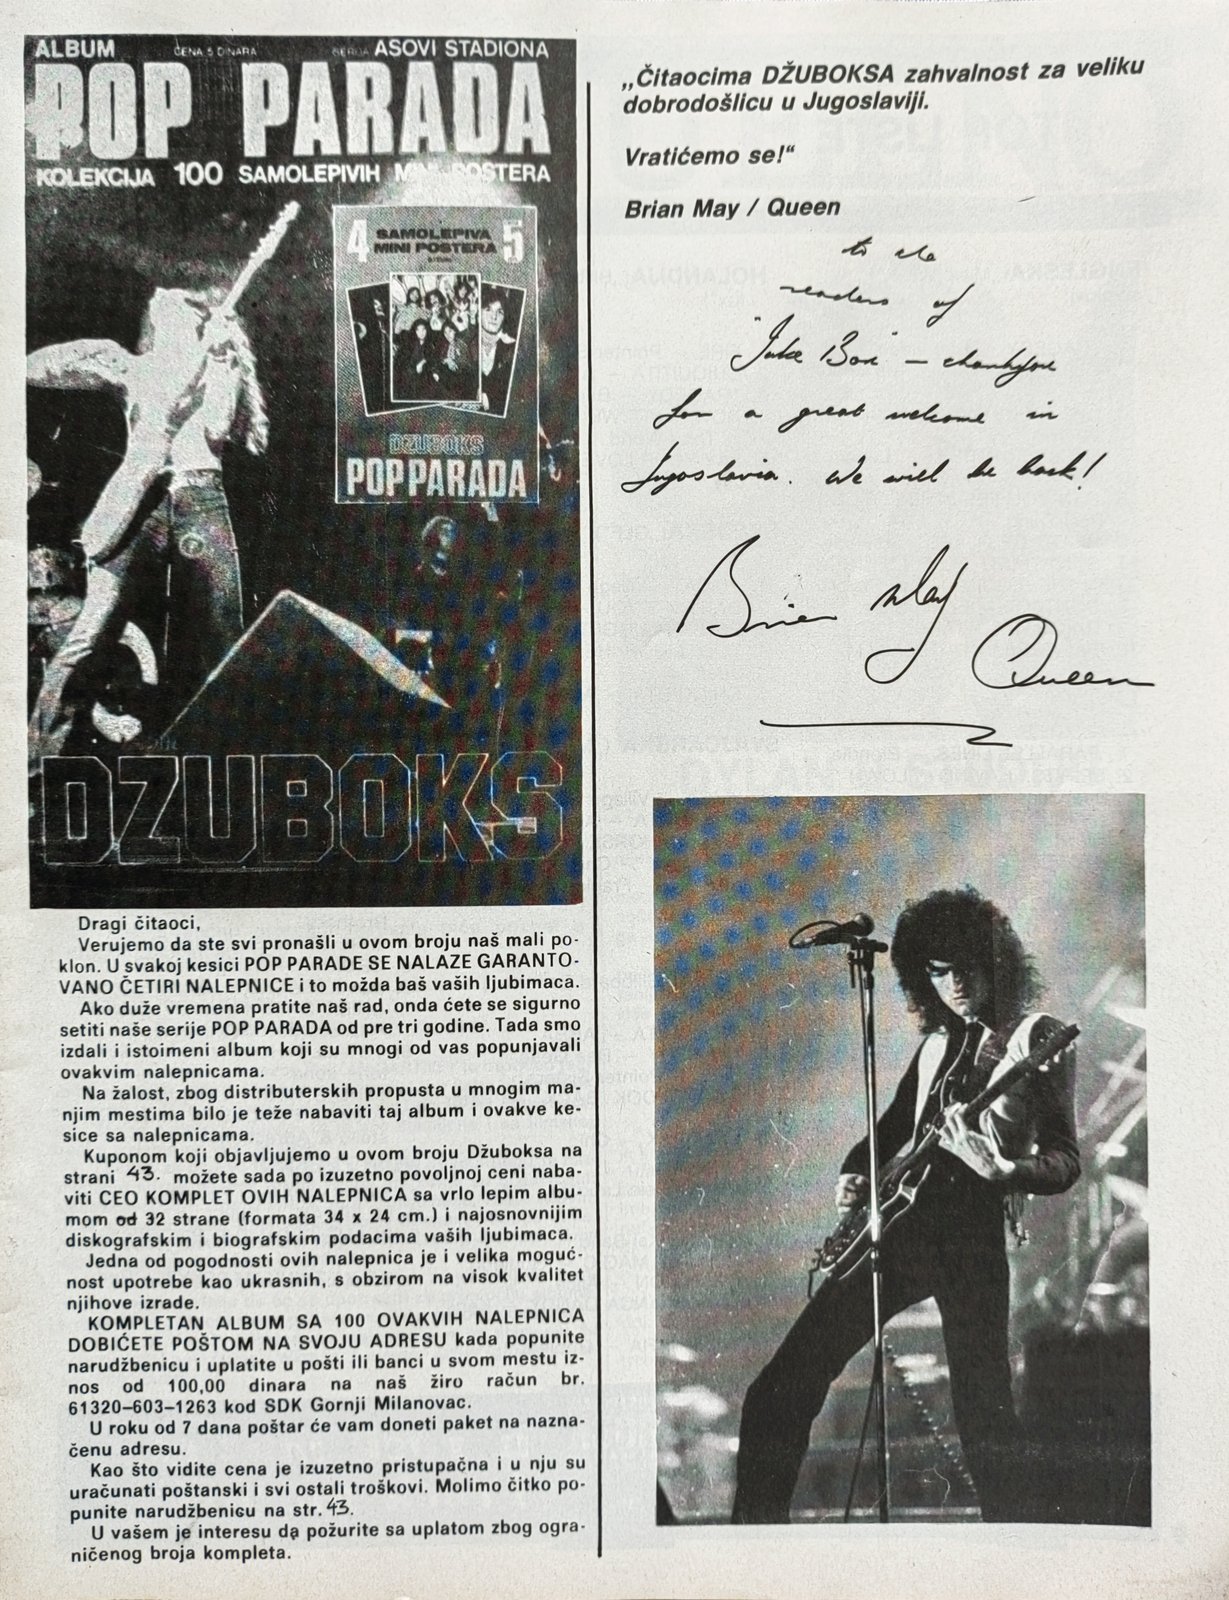 ALBUM CENA 5 DINARA SERIJA ASOVI STADIONA
POP PARADA
KOLEKCIJA 100 SAMOLEPIVIH MINI POSTERA
4 SAMOLEPIVA 5
MINI POSTERA
DŽUBOKS
POP PARADA
DŽUBOKS
Dragi čitaoci,
Verujemo da ste svi pronašli u ovom broju naš mali po-
klon. U svakoj kesici POP PARADE SE NALAZE GARANTO-
VANO ČETIRI NALEPNICE i to možda baš vaših ljubimaca.
Ako duže vremena pratite naš rad, onda ćete se sigurno
setiti naše serije POP PARADA od pre tri godine. Tada smo
izdali i istoimeni album koji su mnogi od vas popunjavali
ovakvim nalepnicama.
Na žalost, zbog distributerskih propusta u mnogim ma-
njim mestima bilo je teže nabaviti taj album i ovakve ke-
sice sa nalepnicama.
Kuponom koji objavljujemo u ovom broju Džuboksa na
strani 43. možete sada po izuzetno povoljnoj ceni naba-
viti CEO KOMPLET OVIH NALEPNICA sa vrlo lepim albu-
mom od 32 strane (formata 34 x 24 cm.) i najosnovnijim
diskografskim i biografskim podacima vaših ljubimaca.
Jedna od pogodnosti ovih nalepnica je i velika moguć-
nost upotrebe kao ukrasnih, s obzirom na visok kvalitet
njihove izrade.
KOMPLETAN ALBUM SA 100 OVAKVIH NALEPNICA
DOBIĆETE POŠTOM NA SVOJU ADRESU kada popunite
narudžbenicu i uplatite u pošti ili banci u svom mestu iz-
nos od 100,00 dinara na naš žiro račun br.
61320–603–1263 kod SDK Gornji Milanovac.
U roku od 7 dana poštar će vam doneti paket na nazna-
čenu adresu.
Kao što vidite cena je izuzetno pristupačna i u nju su
uračunati poštanski i svi ostali troškovi. Molimo čitko po-
punite narudžbenicu na str. 43.
U vašem je interesu da požurite sa uplatom zbog ogra-
ničenog broja kompleta.
„Čitaocima DŽUBOKSA zahvalnost za veliku
dobrodošlicu u Jugoslaviji.
Vratićemo se!“
Brian May / Queen
to the
readers of
"Juke Box" – thankyou
for a great welcome in
Jugoslavia. We will be back!
Brian May
Queen